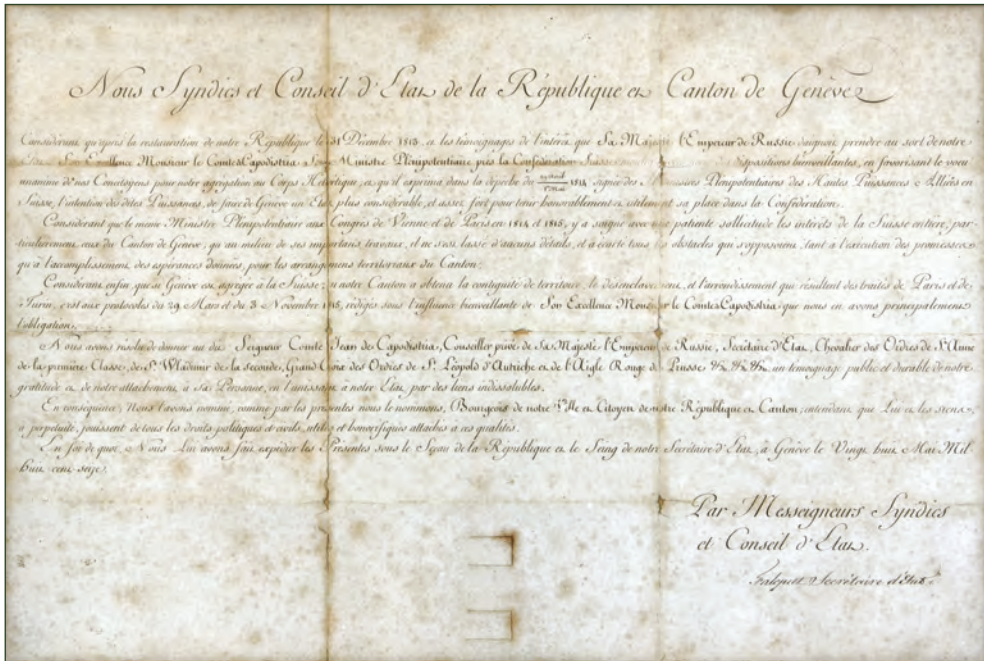 Nous Syndics et Conseil d'Etat de la République et Canton de Genève
Considérant qu'après la restauration de notre République le 31 Décembre 1813, et les témoignages de l'intérêt que Sa Majesté l'Empereur de Russie daignoit prendre au sort de notre
Etat, Son Excellence Monsieur le Comte Capodistria, Ministre Plénipotentiaire près la Confédération Suisse dispositions bienveillantes, en favorisant le voeu
unanime de nos Concitoyens pour notre agrégation au Corps Helvétique, et qu'il exprima dans la dépêche du 1814, signée des Plénipotentiaires des Hautes Puissances Alliées en
Suisse, l'intention des dites Puissances, de faire de Genève un Etat plus considérable, et assez fort pour tenir honorablement et utilement sa place dans la Confédération.
Considérant que le même Ministre Plénipotentiaire aux Congrès de Vienne et de Paris en 1814 et 1815, y a soigné avec une patiente sollicitude les intérêts de la Suisse entière, par-
ticulièrement ceux du Canton de Genève, qu'au milieu de ses importans travaux, il ne s'est lassé d'aucuns détails, et a écarté tous les obstacles qui s'opposoient, tant à l'exécution des promesses
qu'à l'accomplissement des espérances données, pour les arrangemens territoriaux du Canton;
Considérant enfin que si Genève est agrégée à la Suisse, si notre Canton a obtenu la contiguité de territoire, le désenclavement, et l'arrondissement qui résultent des traités de Paris et de
Turin, c'est aux protocoles du 29 Mars et du 3 Novembre 1815, rédigés sous l'influence bienveillante de Son Excellence Monsieur le Comte Capodistria que nous en avons principalement
l'obligation;
Nous avons résolu de donner au dit Seigneur Comte Jean de Capodistria, Conseiller privé de Sa Majesté l'Empereur de Russie, Secrétaire d'Etat, Chevalier des Ordres de Ste Anne
de la première Classe, de St Wladimir de la seconde, Grand Croix des Ordres de St Léopold d'Autriche et de l'Aigle Rouge de Prusse &a &a &a un témoignage public et durable de notre
gratitude et de notre attachement à Sa Personne, en l'unissant à notre Etat, par des liens indissolubles.
En conséquence, Nous l'avons nommé, comme par les présentes nous le nommons, Bourgeois de notre Ville et Citoyen de notre République et Canton, entendant que Lui et les siens,
à perpétuité, jouissent de tous les droits politiques et civils, utiles et honorifiques attachés à ces qualités.
En foi de quoi, Nous Lui avons fait expédier les Présentes sous le Sceau de la République et le Seing de notre Secrétaire d'Etat, à Genève le Vingt huit Mai Mil
huit cent seize.
Par Messeigneurs Syndics
et Conseil d'Etat.
Secrétaire d'Etat